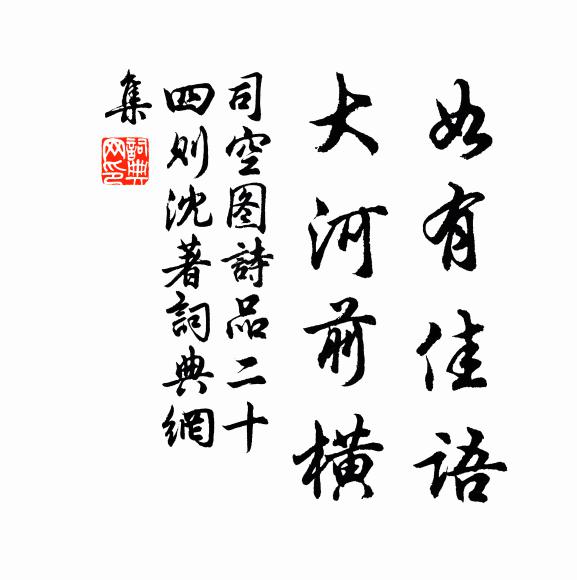 如有佳語
大河前横
司空图詩品二十
四则沈著詞典網
集
詞典
网印